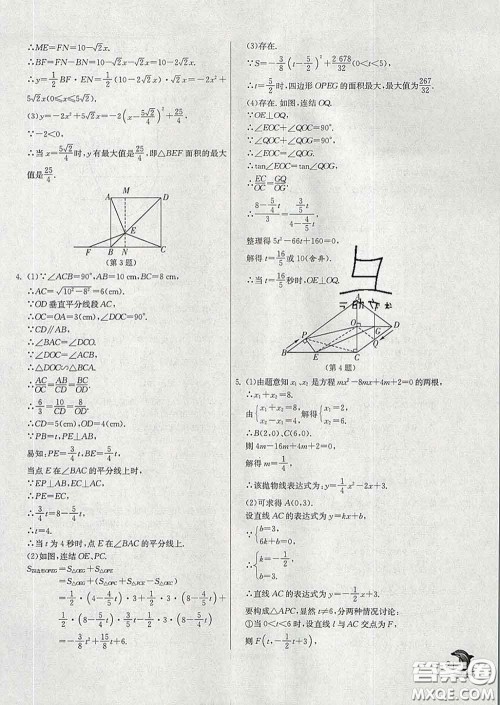 ∴ME=FN=10-√2x.
∴BF=FN-BN=10-√2x-√2x=10-2√2x.
∴y=1/2 BF·EN=1/2(10-2√2x)·√2x=-2x²+
5√2x(0≤x≤5√2/2).
(3)y=-2x²+5√2x=-2(x-5√2/4)²+25/4.
∵-2<0.
∴当x=5√2/4时,y有最大值是25/4,即△BEF面积的最大
值是25/4.
A M D
E
F B N C
(第3题)
4. (1)∵∠ACB=90°,AB=10 cm,BC=8 cm,
∴AC=√(10²-8²)=6(cm).
∵OD垂直平分线段AC,
∴OC=OA=3(cm),∠DOC=90°.
∵CD∥AB,
∴∠BAC=∠DCO.
∵∠DOC=∠ACB,
∴△DOC∽△BCA.
∴AC/OC=AB/CD=BC/OD.
∴6/3=10/CD=8/OD.
∴CD=5(cm),OD=4(cm).
∵PB=t,PE⊥AB,
易知:PE=3/4t,BE=5/4t.
当点E在∠BAC的平分线上时,
∵EP⊥AB,EC⊥AC,
∴PE=EC.
∴3/4t=8-5/4t.
∴t=4.
∴当t为4秒时,点E在∠BAC的平分线上.
(2)如图,连结OE,PC.
S四边形OPEG=S△OEG+S△OPE
=S△OEG+(S△OPC+S△PCE-S△OEC)
=-3/8t²+15/8t+6.
(3)存在.
∴t=5/2时,四边形OPEG的面积最大,最大值为267/32
(4)存在.如图,连结OQ.
∵OE⊥OQ,
∴∠EOC+∠QOC=90°.
∵∠QOC+∠QOG=90°,
∴∠EOC=∠QOG.
∴tan∠EOC=tan∠QOG.
∴EC/OC=GQ/OG.
整理得5t²-66t+160=0.
解得t=16/5或10(舍弃).
∴当t=16/5秒时,OE⊥OQ.
P O G D
B E C Q
(第4题)
5. (1)由题意知x₁、x₂是方程mx²-8mx+4m+2=0的两根,
∴x₁+x₂=8.
由{x₁+x₂=8, x₂-x₁=4,解得{x₁=2, x₂=6.
∴B(2,0),C(6,0).
则4m-16m+4m+2=0.
解得m=1/4.
∴该抛物线的表达式为:y=1/4x²-2x+3.
(2)可求得A(0,3).
设直线AC的表达式为y=kx+b,
∵{b=3, 6k+b=0, ∴{k=-1/2, b=3.
∴直线AC的表达式为y=-1/2x+3.
要构成△APC,显然t≠6,分两种情况讨论:
①当0<t<6时,设直线l与AC交点为F,
则F(t,-1/2t+3),
答案圈
MXQE.COM